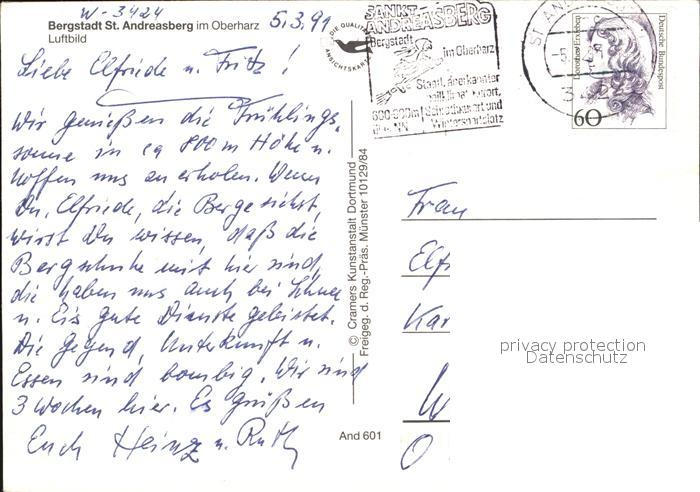 W-3424
Bergstadt St. Andreasberg im Oberharz 5.3.91
Luftbild
Liebe Elfriede u. Fritz!
Wir genießen die Frühlings-
sonne in ca 800m Höhe u.
hoffen uns zu erholen. Wenn
Du, Elfriede, die Berge siehst,
wirst Du wissen, daß die
Bergschuhe mit hier sind,
die haben uns auch bei Schnee
u. Eis gute Dienste geleistet.
Die Gegend, Unterkunft u.
Essen sind bombig. Wir sind
3 Wochen hier. Es grüßen
Euch Heinz u. Ruth
DIE QUALITÄTS
ANSICHTSKARTE
SANKT
ANDREASBERG
Bergstadt im Oberharz
Staatl. anerkannter
heilklim. Kurort,
600-900m Schrothkurort und
ü. NN Wintersportplatz
ST ANDR
Deutsche Bundespost
Dorothea Erxleben
60
© Cramers Kunstanstalt Dortmund
Freigeg. d. Reg.-Präs. Münster 10129/84
And 601
Frau
Elf
Kar
W
O
privacy protection
Datenschutz